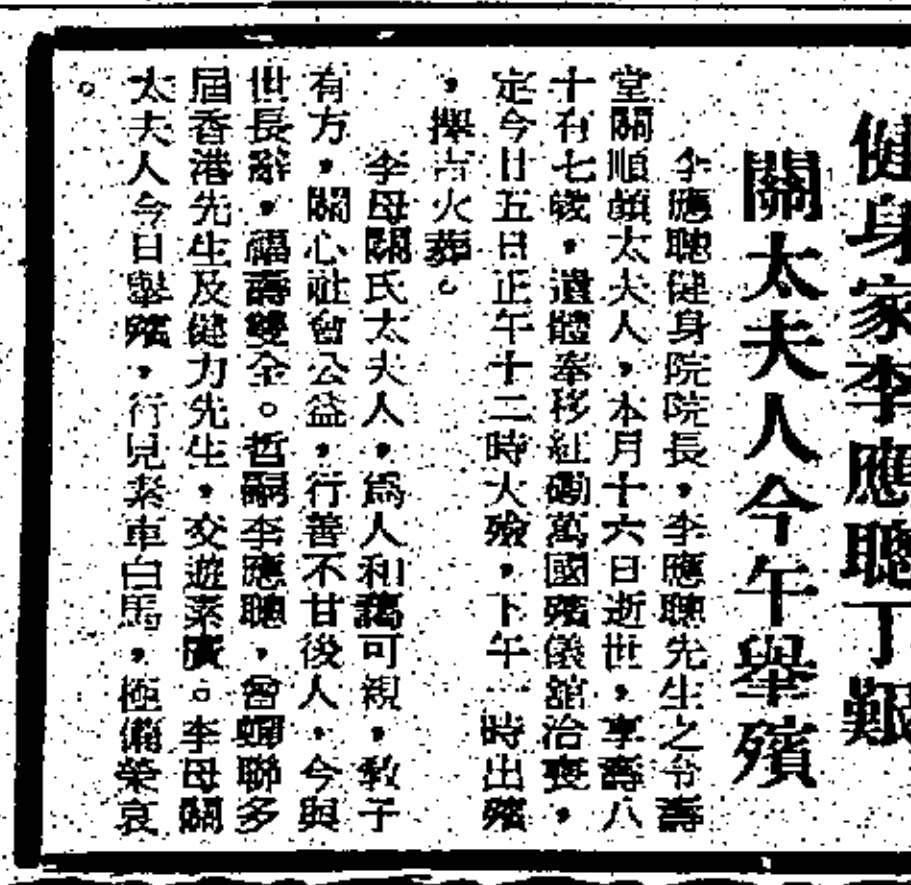 健身家李應聰丁艱
關太夫人今午舉殯
李應聰健身院院長，李應聰先生之令壽
堂關順顏太夫人，本月十六日逝世，享壽八
十有七歲，遺體奉移紅磡萬國殯儀館治喪，
定今廿五日正午十二時大殮，下午一時出殯
，舉吉火葬。
李母關氏太夫人，爲人和藹可親，敎子
有方，關心社會公益，行善不甘後人，今與
世長辭，福壽雙全。哲嗣李應聰，曾蟬聯多
屆香港先生及健力先生，交遊素廣。李母關
太夫人今日舉殯，行見素車白馬，極備榮哀
。